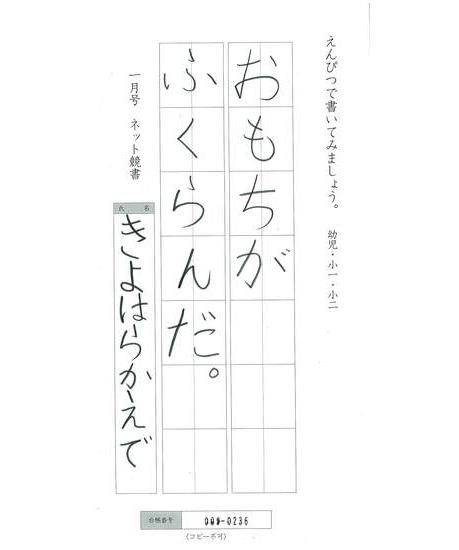 えんぴつで書いてみましょう。 幼児・小一・小二
おもちが
ふくらんだ。
一月号 ネット競書
氏 名
きよはらかえで
台帳番号 009-0236
(コピー不可)